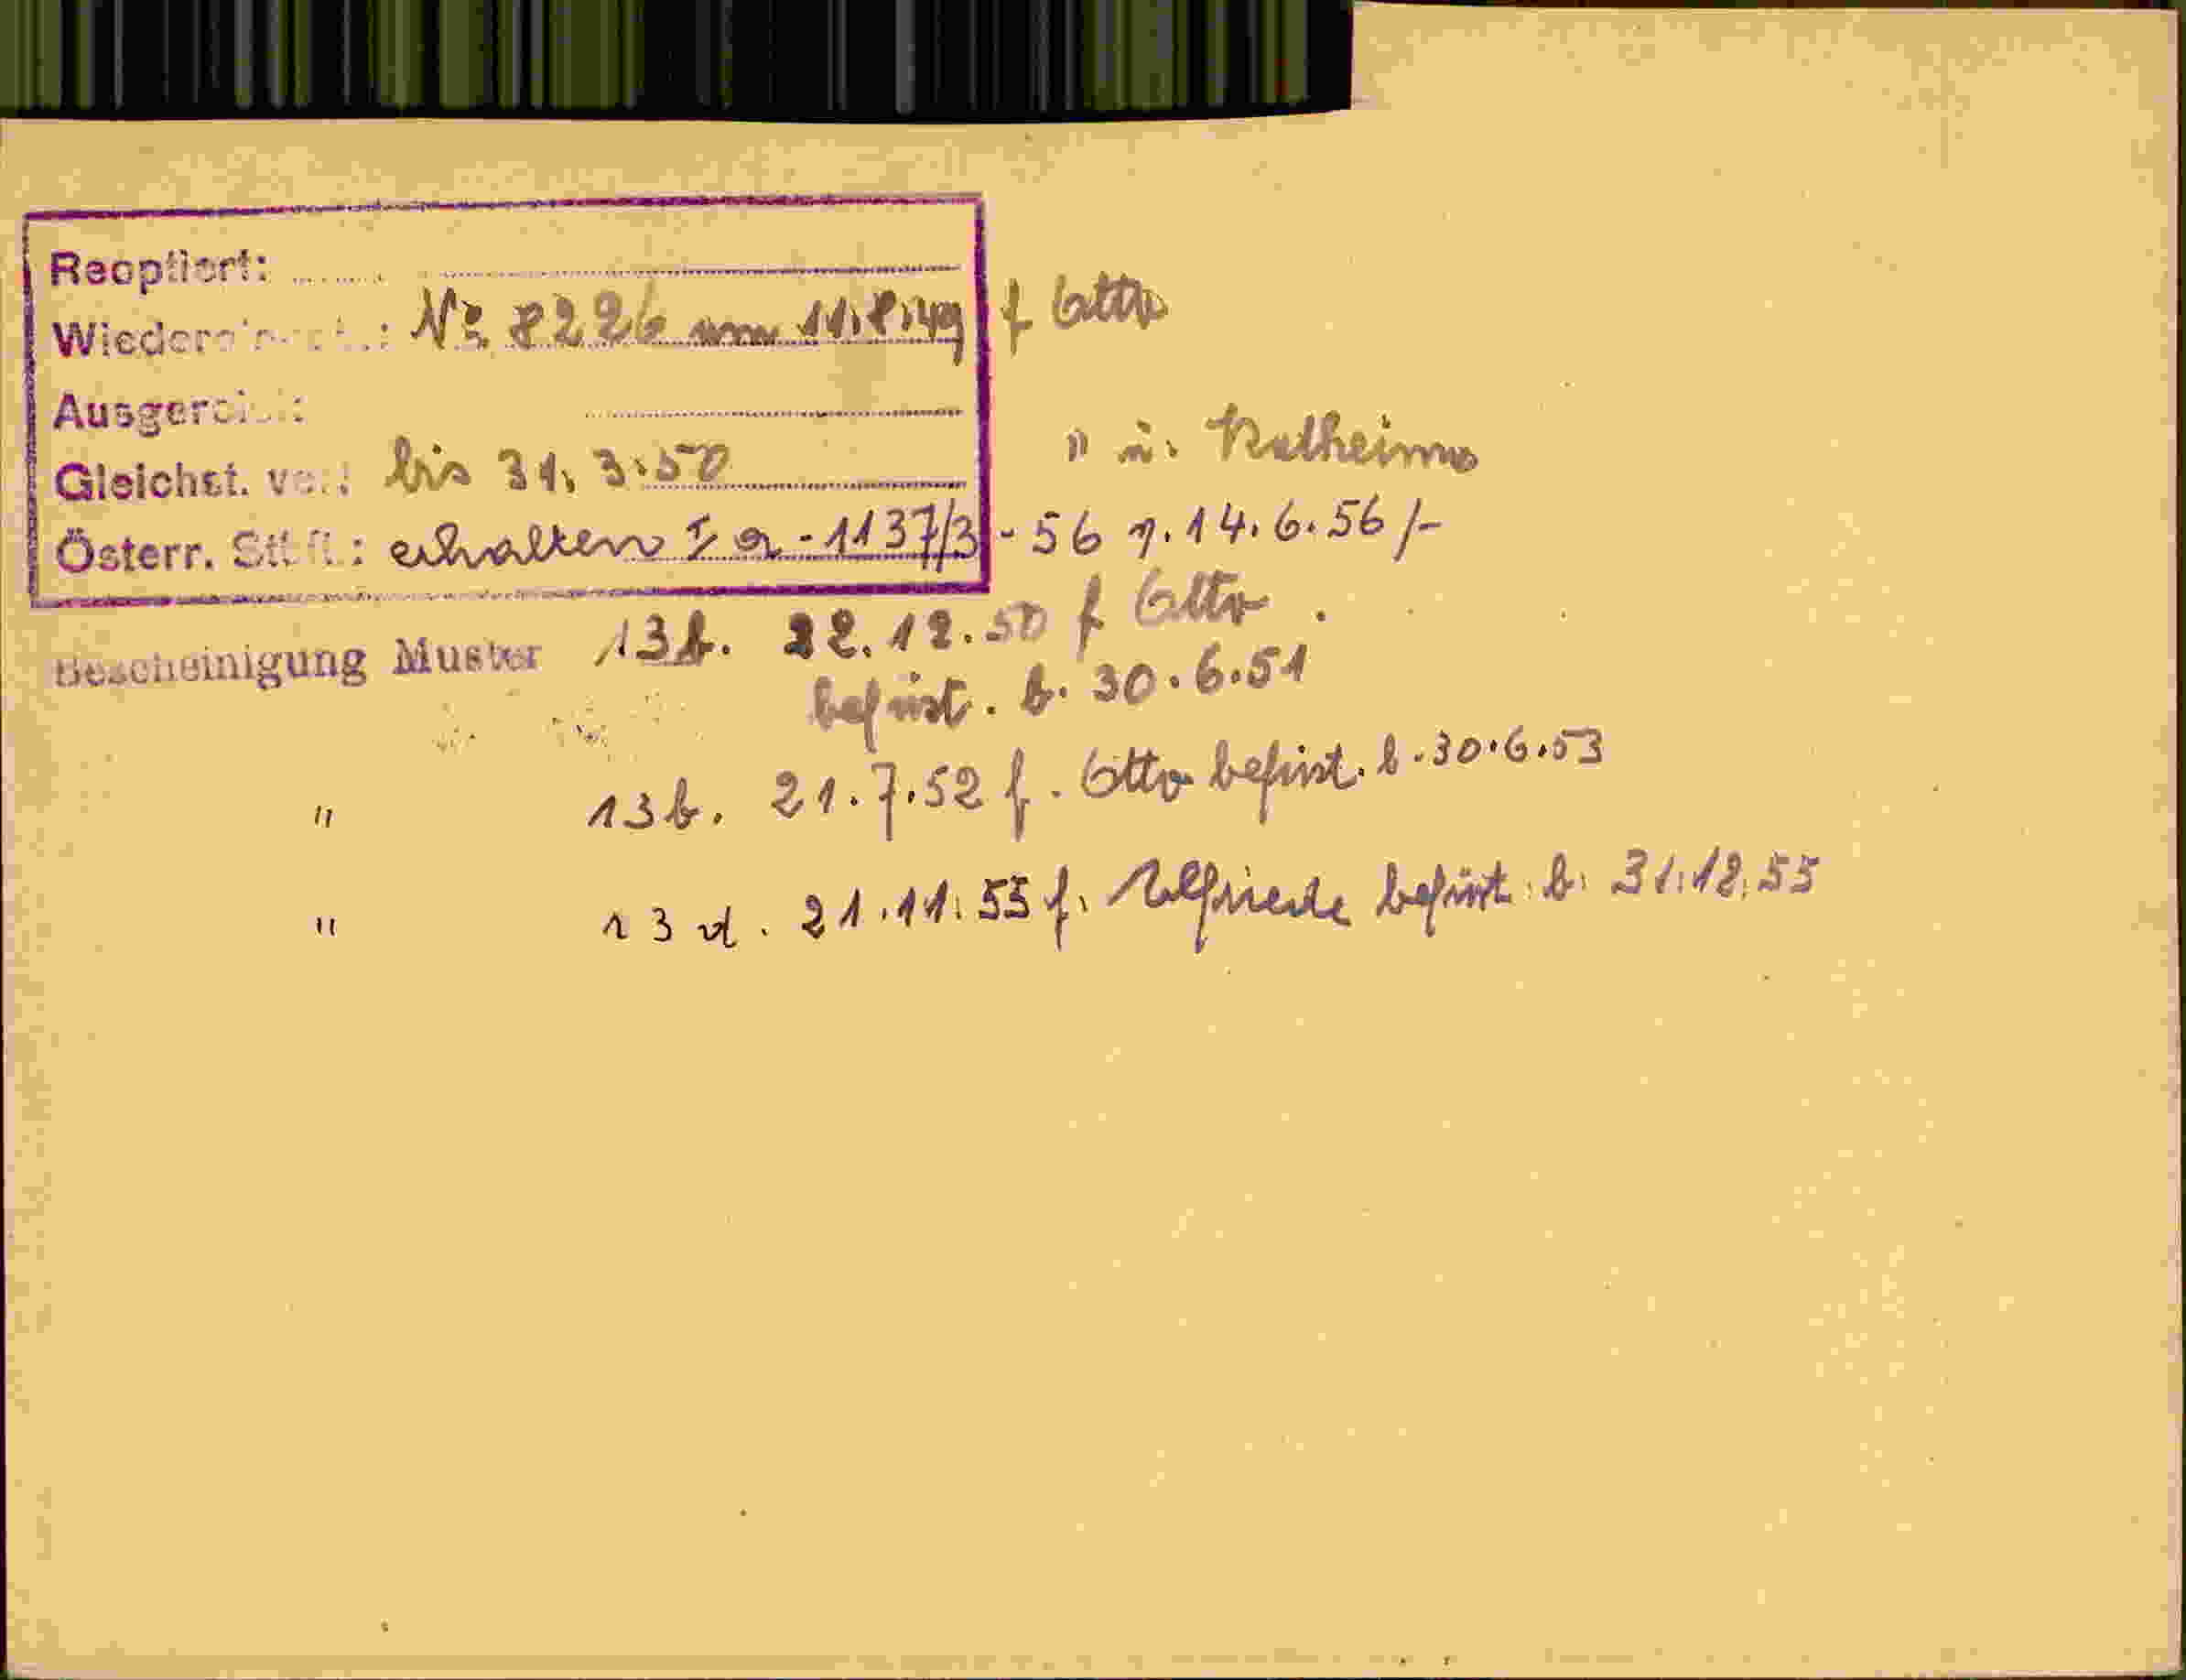 Reoptiert:
No 8226 vom 11.8.49 f Otto
Ausgereist:
Gleichst. verl: bis 31.3.50 " u.
Österr. Stbft.: erhalten I a - 1137/3 - 56 v. 14.6.56 /-
Bescheinigung Muster 13b. 22.12.50 f Otto
befrist. b. 30.6.51
" 13b. 21.7.52 f. Otto befrist. b. 30.6.53
" 13d. 21.11.55 f. befrist. b. 31.12.55